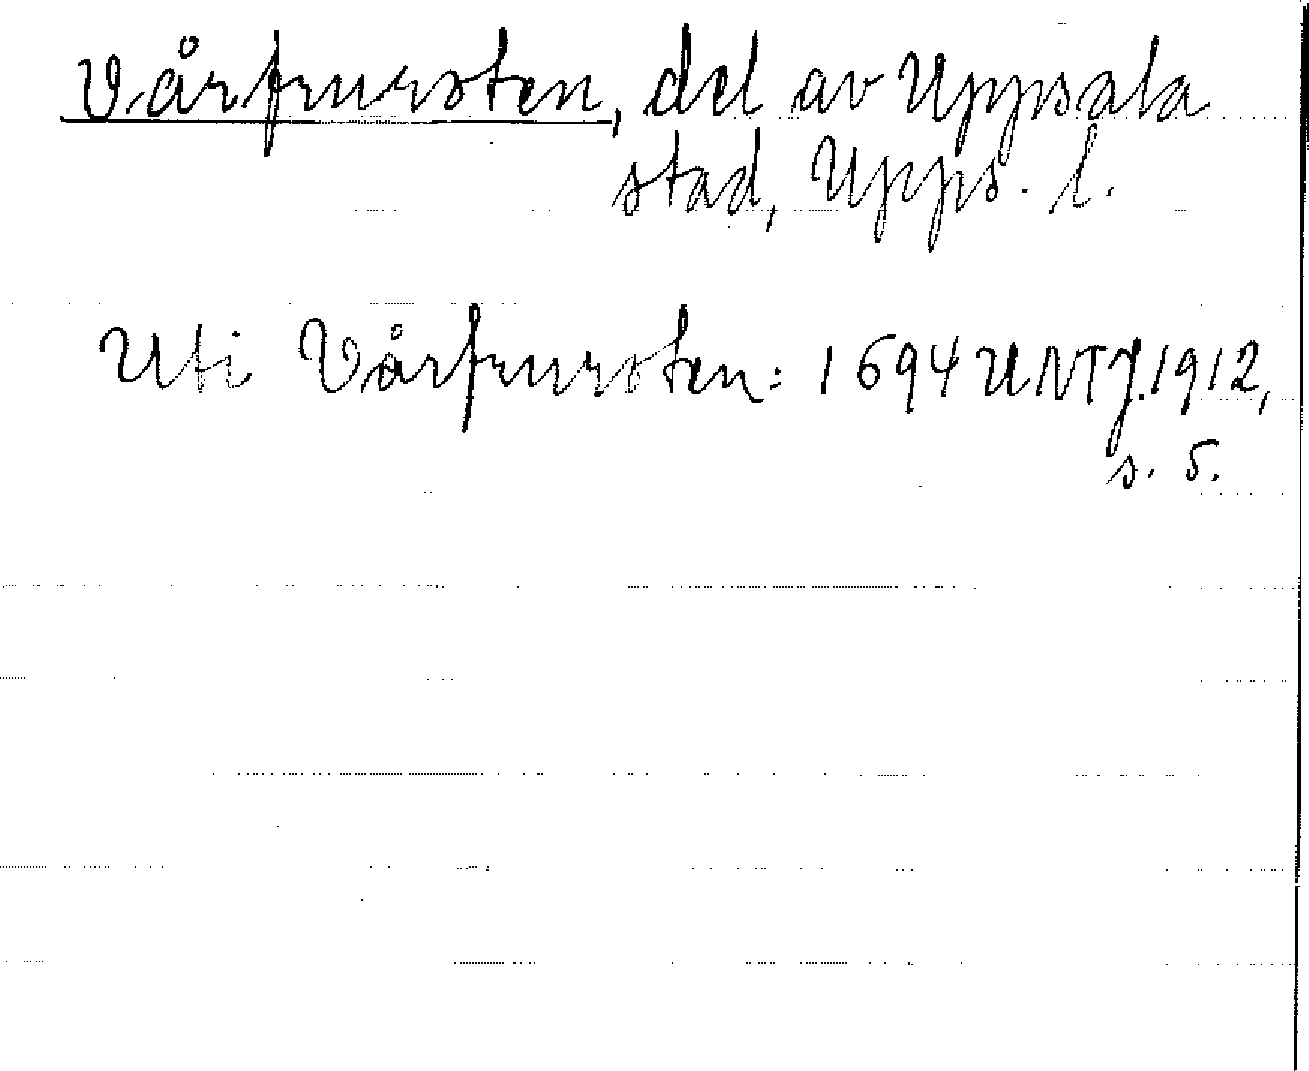 Vårfrursten, del av Uppsala
stad, Upps. l.
Uti Vårfrursten: 1694 UNTJ. 1912,
s. 5.